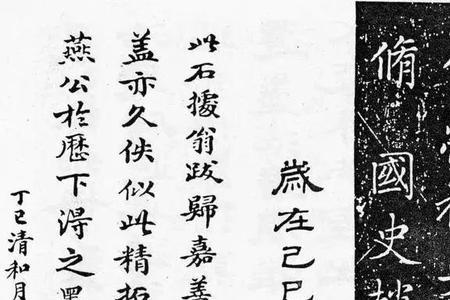 脩國史
歲在己巳
此石據翁跋歸嘉善
盖亦久佚似此精拓
燕公扵歷下淂之
丁巳清和月